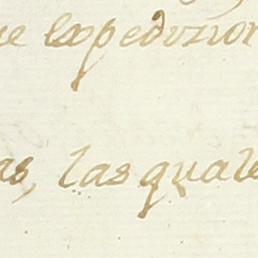 ue expeduzion
as, las quale